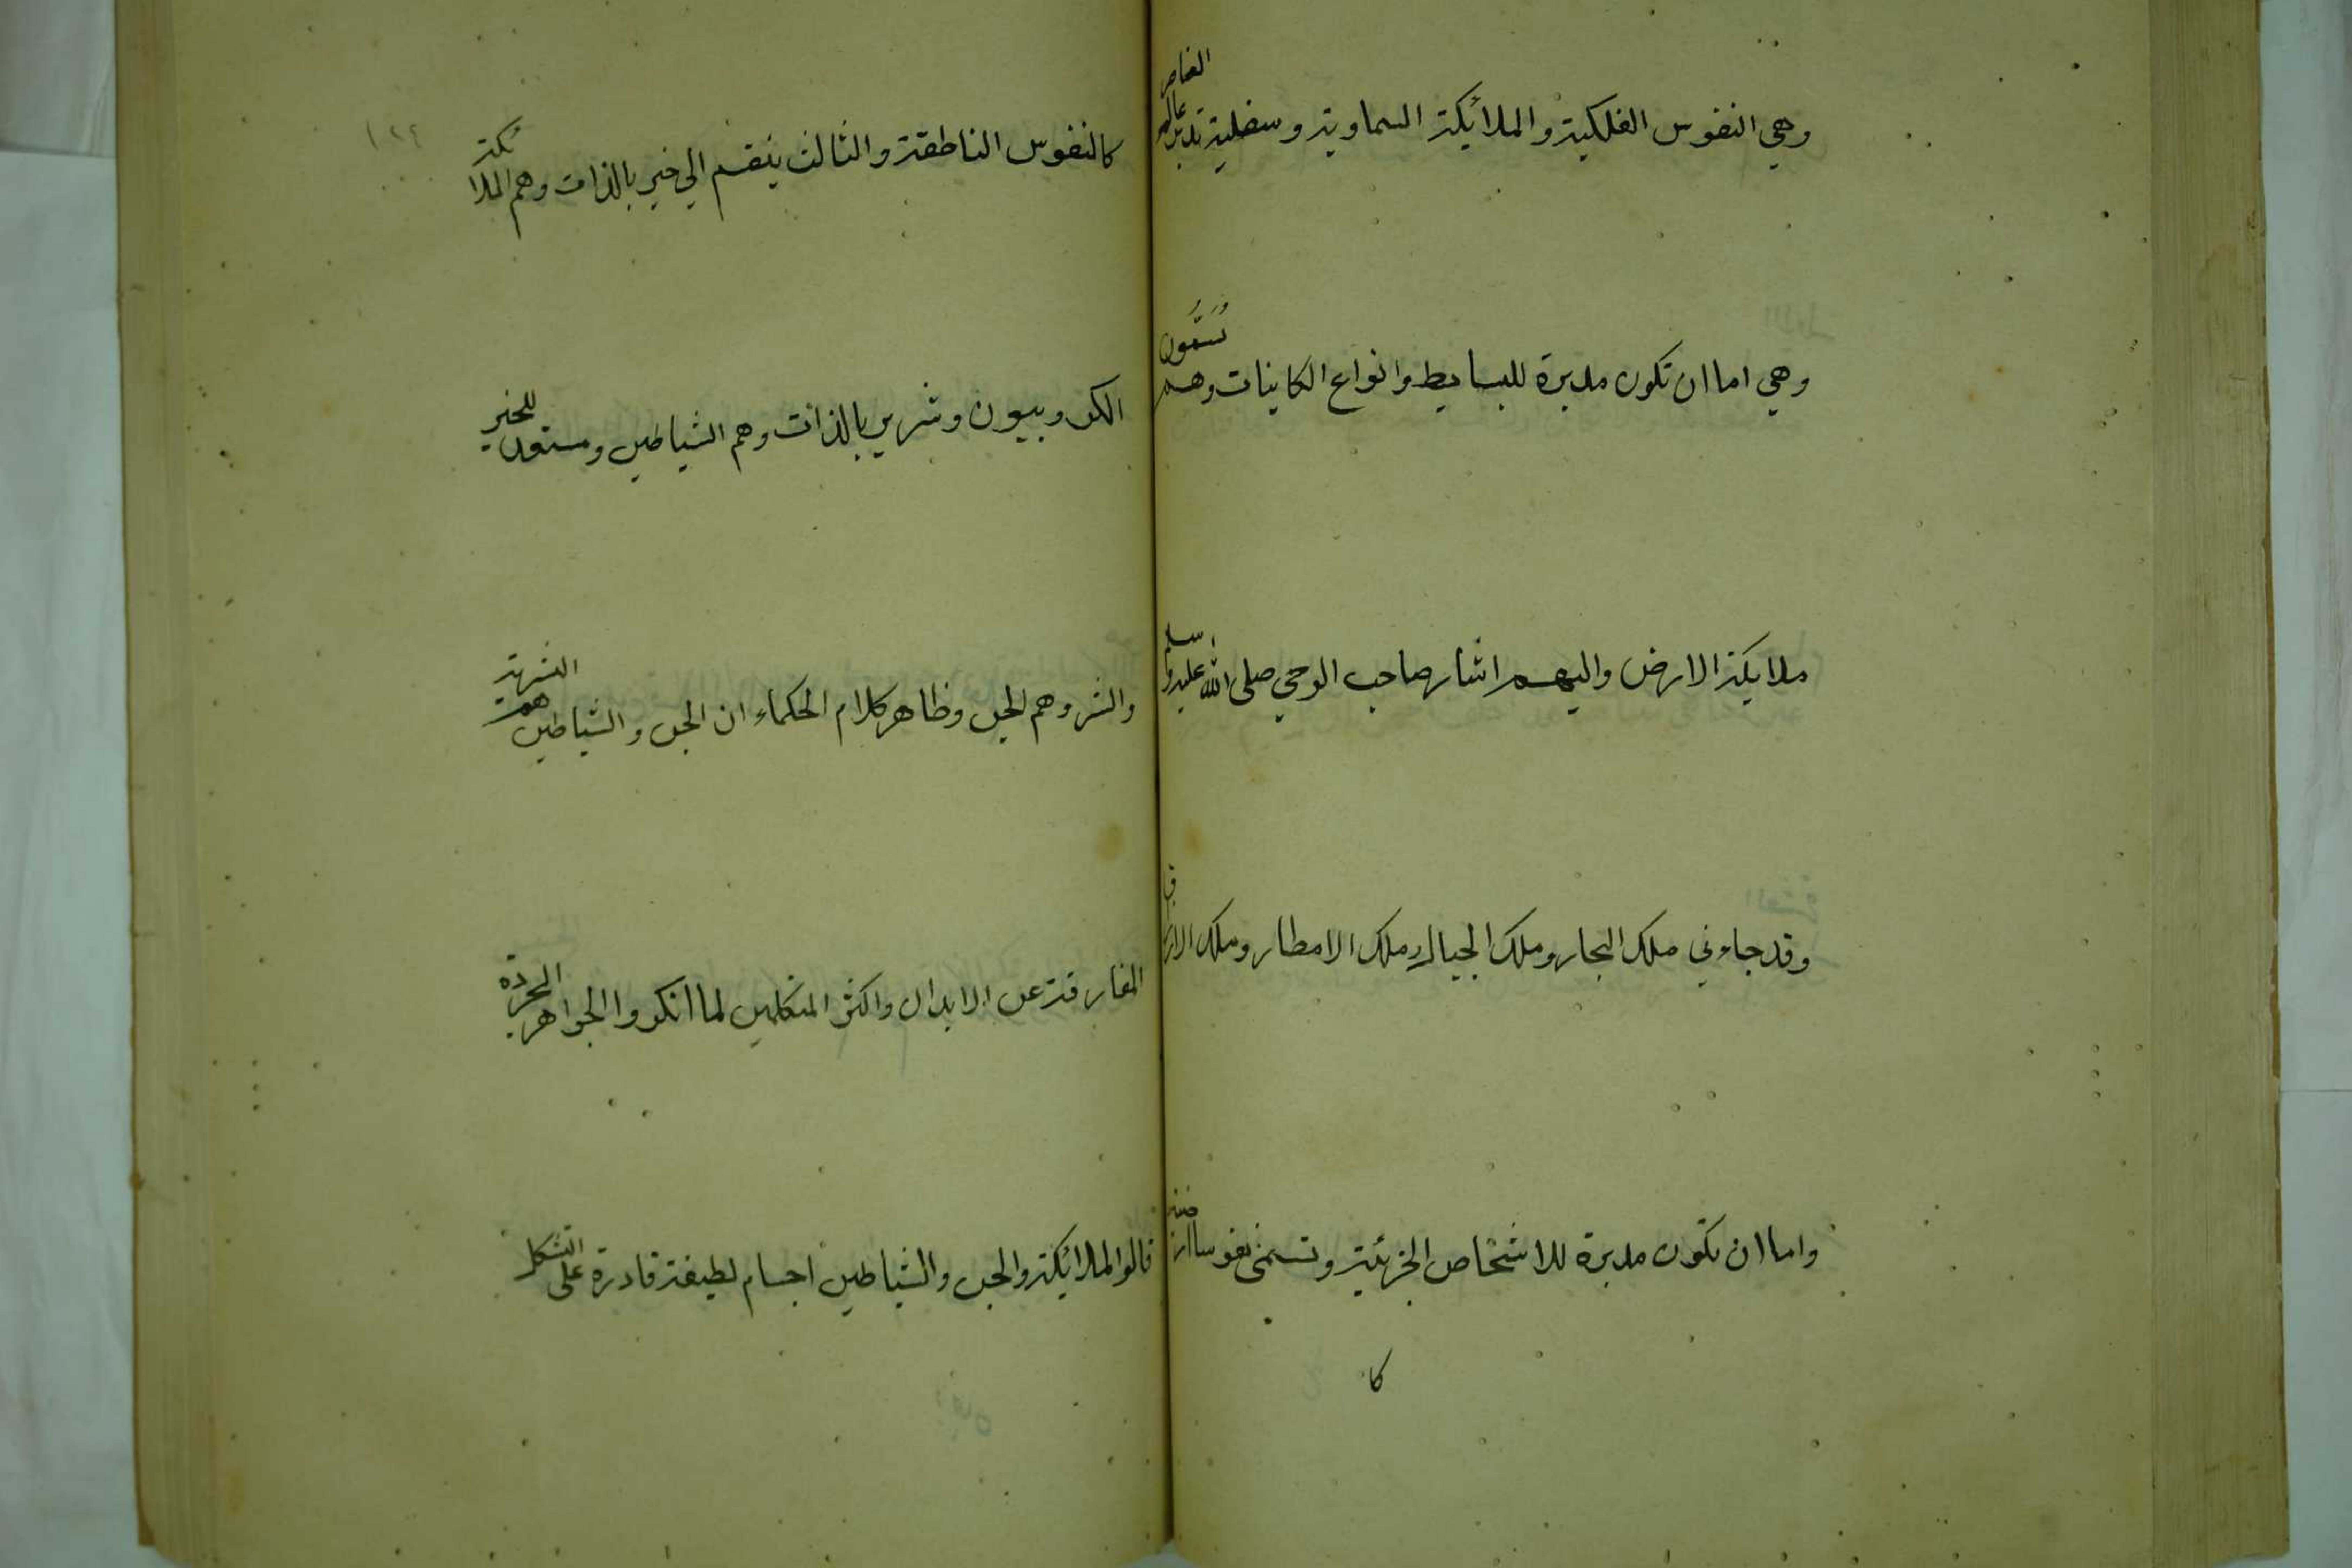 وهي النفوس الفلكية والملائكة السماوية وسفلية تدبر عالم العناصر
وهي اما ان تكون مدبرة للبسايط وانواع الكاينات وهم يُسَمَّون
ملايكة الارض واليهم اشار صاحب الوحي صلى الله عليه وسلم
وقد جاءني ملك البحار وملك الجبال وملك الامطار وملك الارزاق
واما ان تكون مدبرة للاشخاص الجزئية وتسمى نفوسا ارضية
كا
١٢٤
كالنفوس الناطقة والثالث ينقسم الي خير بالذات وهم الملائكة
الكروبيون وشرير بالذات وهم الشياطين ومستعد للخير
والشر وهم الجن وظاهر كلام الحكماء ان الجن والشياطين هم البشرية
المفارقة عن الابدان واكثر المتكلمين لما انكروا الجواهر المجردة
قالوا الملائكة والجن والشياطين اجسام لطيفة قادرة على التشكل